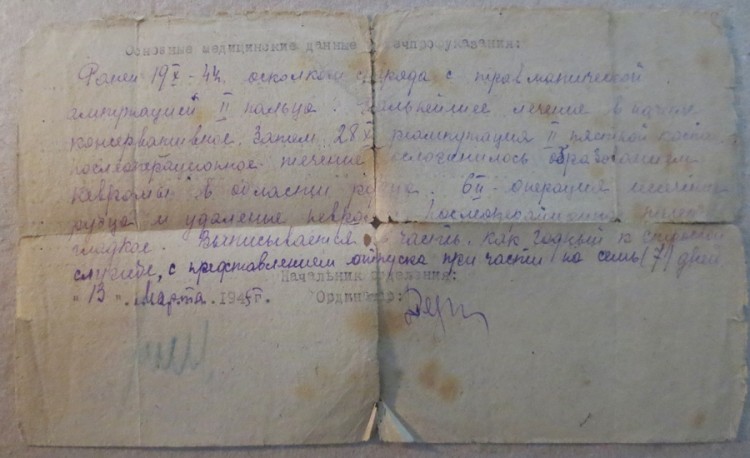 Основные медицинские данные лечпроф.указания:
Ранен 19 X - 44г. осколком снаряда с травматической
ампутацией II пальца. Дальнейшее лечение в начале
консервативное. Затем 28 X реампутация II пястной кости
послеоперационное течение осложнилось образованием
невромы в области рубца. 6 II - операция иссечение
рубца и удаление невромы. Послеоперационный
гладкое. Выписывается в часть, как годный к строевой
службе, с представлением отпуска при части на семь (7) дней
Начальник отделения:
" 13 " Марта 1945г. Ординатор: